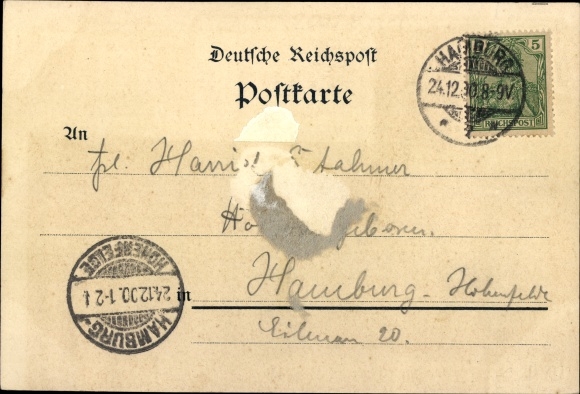 Deutsche Reichspost
Postkarte
5
REICHSPOST
HAMBURG
24.12.00.8-9V
* 1 *
An
frl. Stahmer
Hamburg-Hohenfelde
in
Eilenau 20.
HAMBURG-
24.12.00.1-2
HOHENFELDE